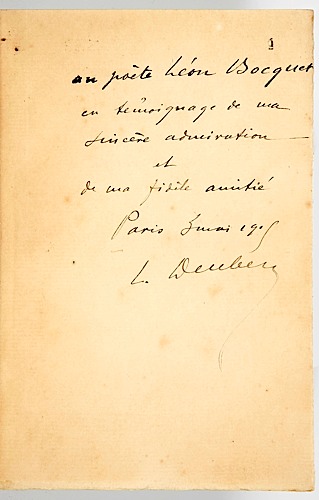 au poète Léon Bocquet
en témoignage de ma
sincère admiration
et
de ma fidèle amitié
Paris 3 mai 1905
L. Deubel